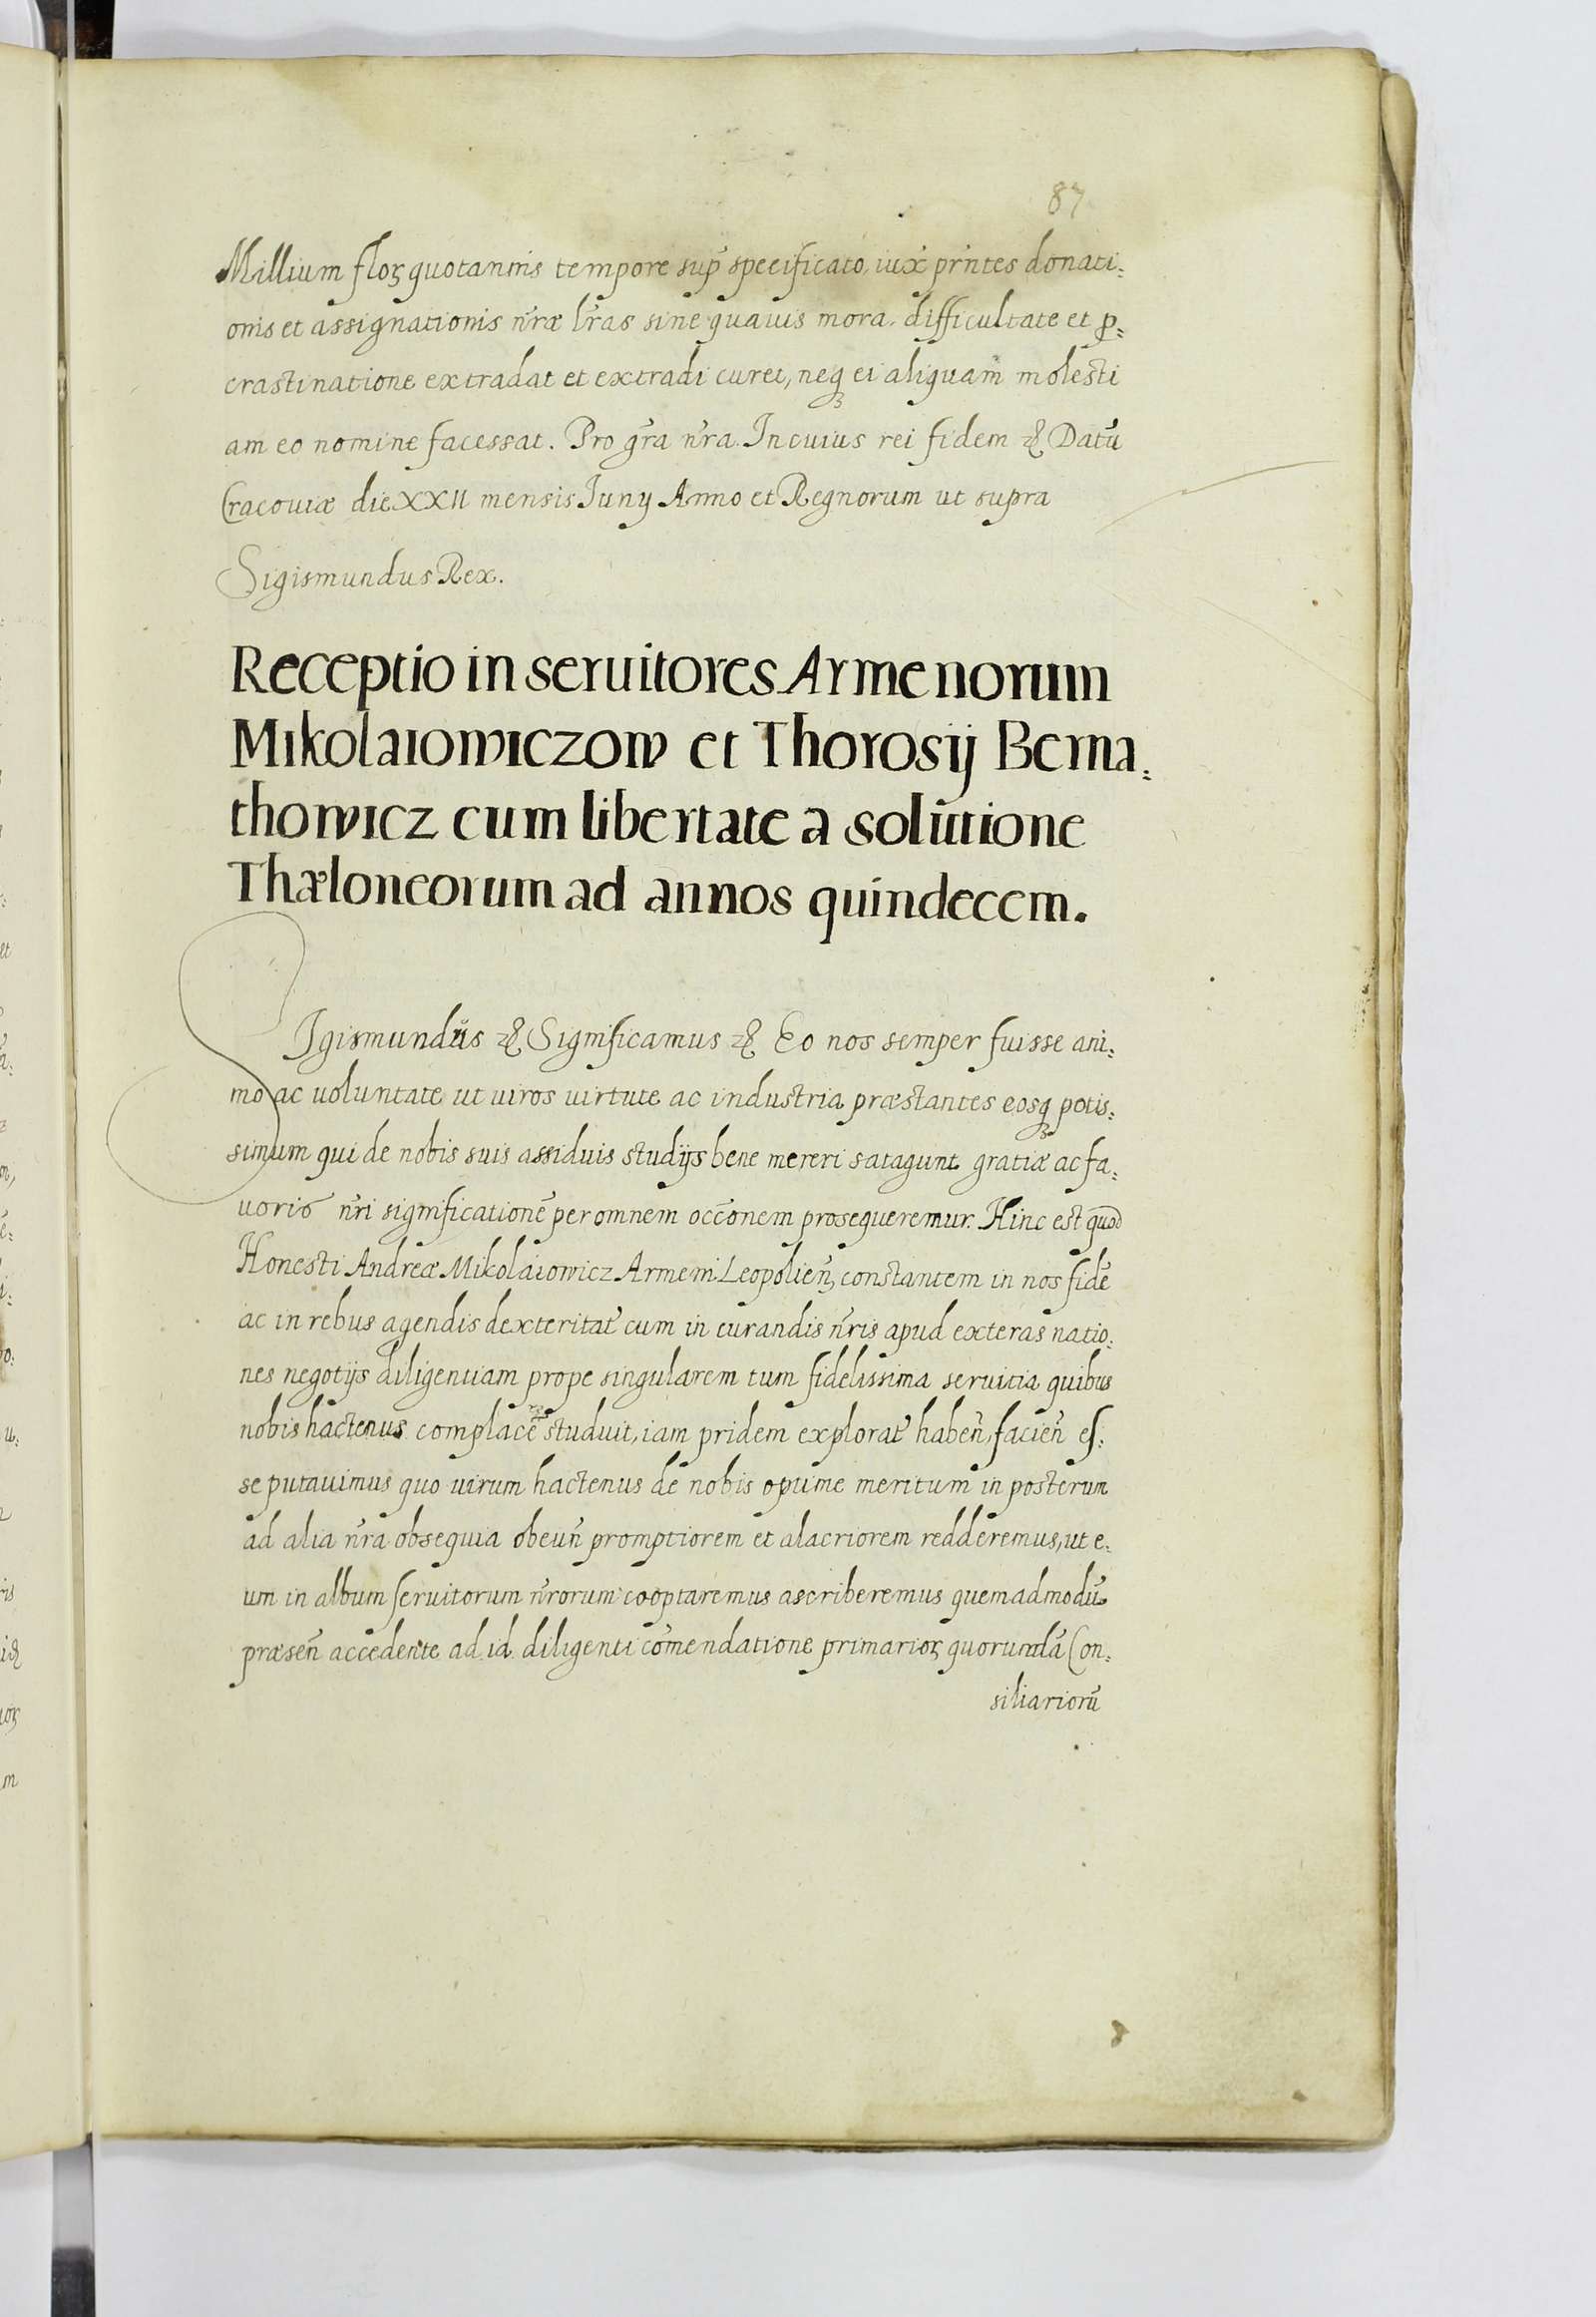 87
Millium floꝝ quotannis tempore sup̃ specificato, iux̃ pr̃ntes donati:
onis et assignationis nr̃æ lr̃as sine quauis mora. difficultate et ꝓ:
crastinatione extradat et extradi curet, neqꝫ ei aliquam molesti
am eo nomine facessat. Pro gr̃a nr̃a. In cuius rei fidem ⁊c̃ Datũ
Cracouiæ die XXII mensis Iunij Anno et Regnorum ut supra
Sigismundus Rex.
Receptio in seruitores Armenorum
Mikolaiowiczow et Thorosij Berna:
thowicz cum libertate a solŭtione
Thæloneorum ad annos quindecem.
SIgismundŭs ⁊c̃ Significamus ⁊c̃ Eo nos semper fuisse ani:
mo ac uoluntate ut uiros uirtute ac industria præstantes eosqꝫ potis:
simum qui de nobis suis assiduis studijs bene mereri satagunt gratiæ ac fa:
uoris nr̃i significationẽ per omnem occ̃onem prosequeremur. Hinc est quod
Honesti Andreæ Mikolaiowicz Armeni Leopolieñ, constantem in nos fidẽ
ac in rebus agendis dexteritat̃ cum in curandis nr̃is apud exteras natio:
nes negotijs diligentiam prope singularem tum fidelissima seruitia quibus
nobis hactenus complacẽ studuit, iam pridem explorat̃ habeñ, facieñ es:
se putauimus quo uirum hactenus de nobis optime meritum in posterum
ad alia nr̃a obsequia obeuñ promptiorem et alacriorem redderemus, ut e:
um in album seruitorum nr̃orum cooptaremus ascriberemus quemadmodũ
præseñ accedente ad id diligenti com̃endatione primarioꝝ quorundã Con:
siliariorũ